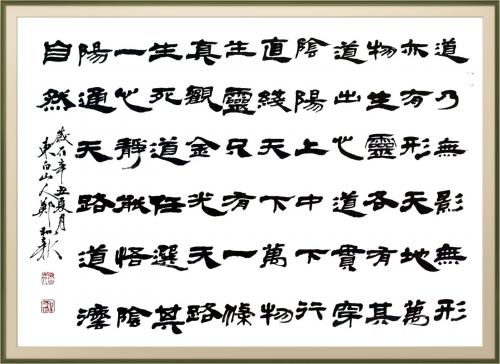 道乃無影無形
亦有形天地萬
物生靈各有其
道出心道貫穿
陰陽上中下行
直綫天下萬物
生靈只有一條
真觀金光天路
生死道任選其
一心靜悟陰
陽通天路道灋
自然
歲在辛丑夏月
東白山人鄭和